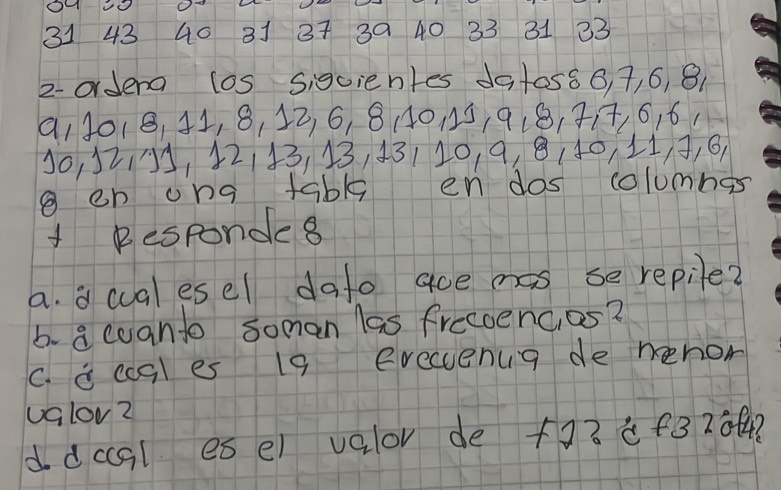 31 43 40 31 37 39 40 33 31 33
2- ordena los siguientes datos: 6,7,6,8,
9,10,8,11,8,12,6,8,10,11,9,8,7,7,6,6,
10,12,11,12,13,13,13,10,9,8,10,11,7,6,
8 en una tabla en dos columnas
f Responde:
a. ¿cual es el dato que mas se repite?
b. ¿cuanto soman las frecuencias?
c. ¿cual es la frecuencia de menor
valor?
d. ¿cual es el valor de f1? ¿f3? ¿f4?